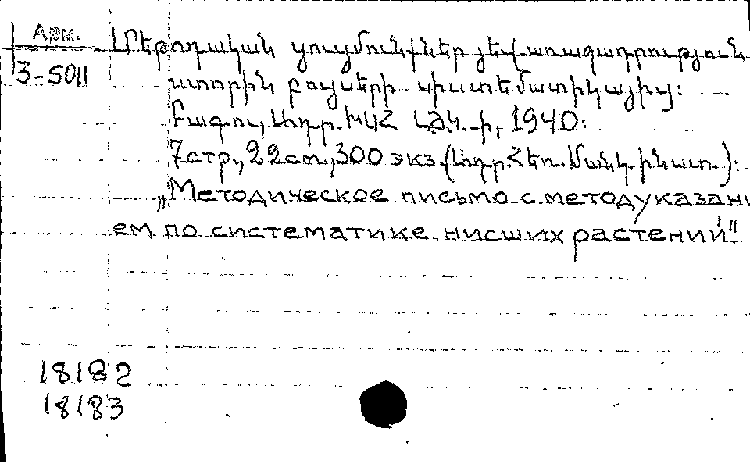 Арм.
3-5011
Մեթոդական ցուցմունքներ և առաջադրություն
ստորին բույսերի սիստեմատիկայից։
Բաքու, Ադր. ԽՍՀ ԼԺԿ-ի, 1940։
7 стр., 22 см., 300 экз. (Ադր. Հեռ. Մանկ. ինստ.)։
„Методическое письмо с методуказани
ем по систематике нисших растений"
18182
18183